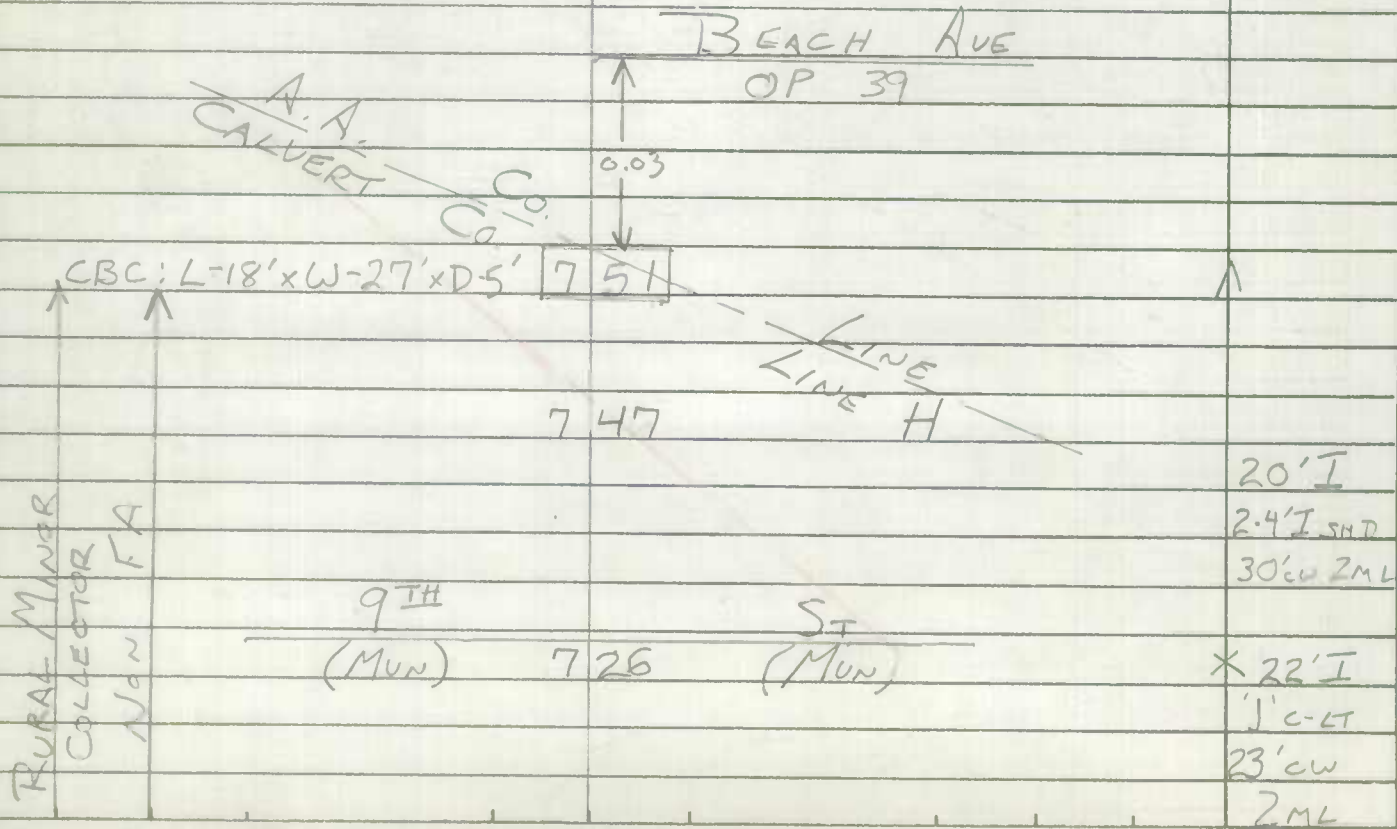 BEACH AVE
OP 39
A.A. Co.
CALVERT Co
0.03
CBC: L-18'xW-27'xD-5' 7 51
LINE
LINE
7 47 H
20' I
2-4' I SHD
30' CW 2ML
9TH ST
(MUN) 7 26 (MUN)
X 22' I
1' C-LT
23' CW
2ML
RURAL MINOR
COLLECTOR
NON FA